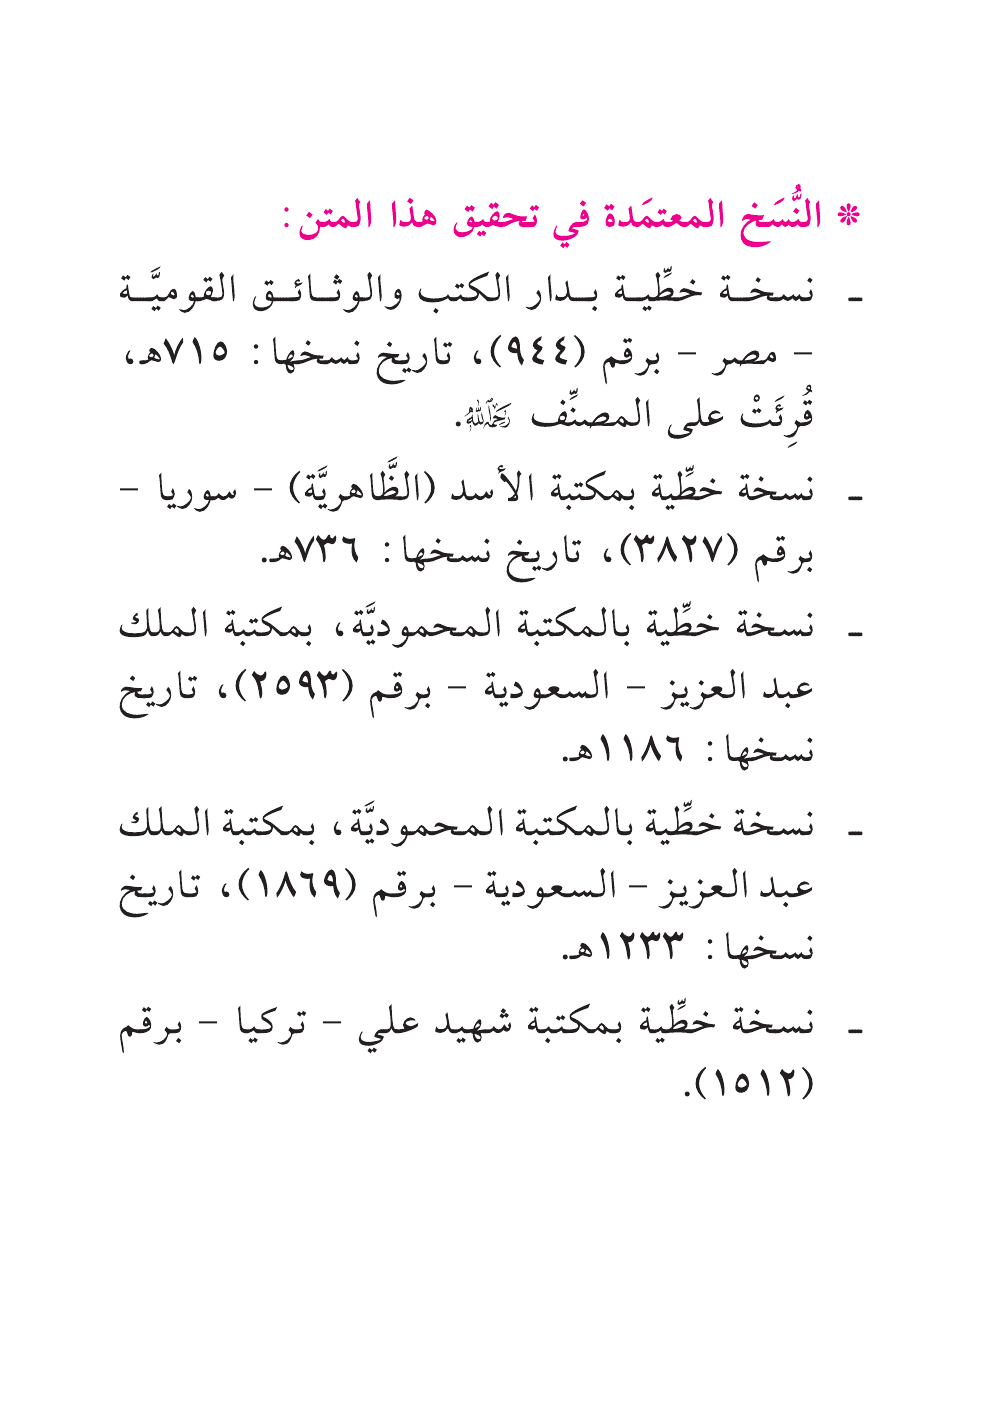 ❊ النُّسَخ المعتمَدة في تحقيق هذا المتن:
ـ نسخة خطِّية بدار الكتب والوثائق القوميَّة
– مصر – برقم (٩٤٤)، تاريخ نسخها: ٧١٥هـ،
قُرِئَتْ على المصنِّف رحمه الله.
ـ نسخة خطِّية بمكتبة الأسد (الظَّاهريَّة) – سوريا –
برقم (٣٨٢٧)، تاريخ نسخها: ٧٣٦هـ.
ـ نسخة خطِّية بالمكتبة المحموديَّة، بمكتبة الملك
عبد العزيز – السعودية – برقم (٢٥٩٣)، تاريخ
نسخها: ١١٨٦هـ.
ـ نسخة خطِّية بالمكتبة المحموديَّة، بمكتبة الملك
عبد العزيز – السعودية – برقم (١٨٦٩)، تاريخ
نسخها: ١٢٣٣هـ.
ـ نسخة خطِّية بمكتبة شهيد علي – تركيا – برقم
(١٥١٢).